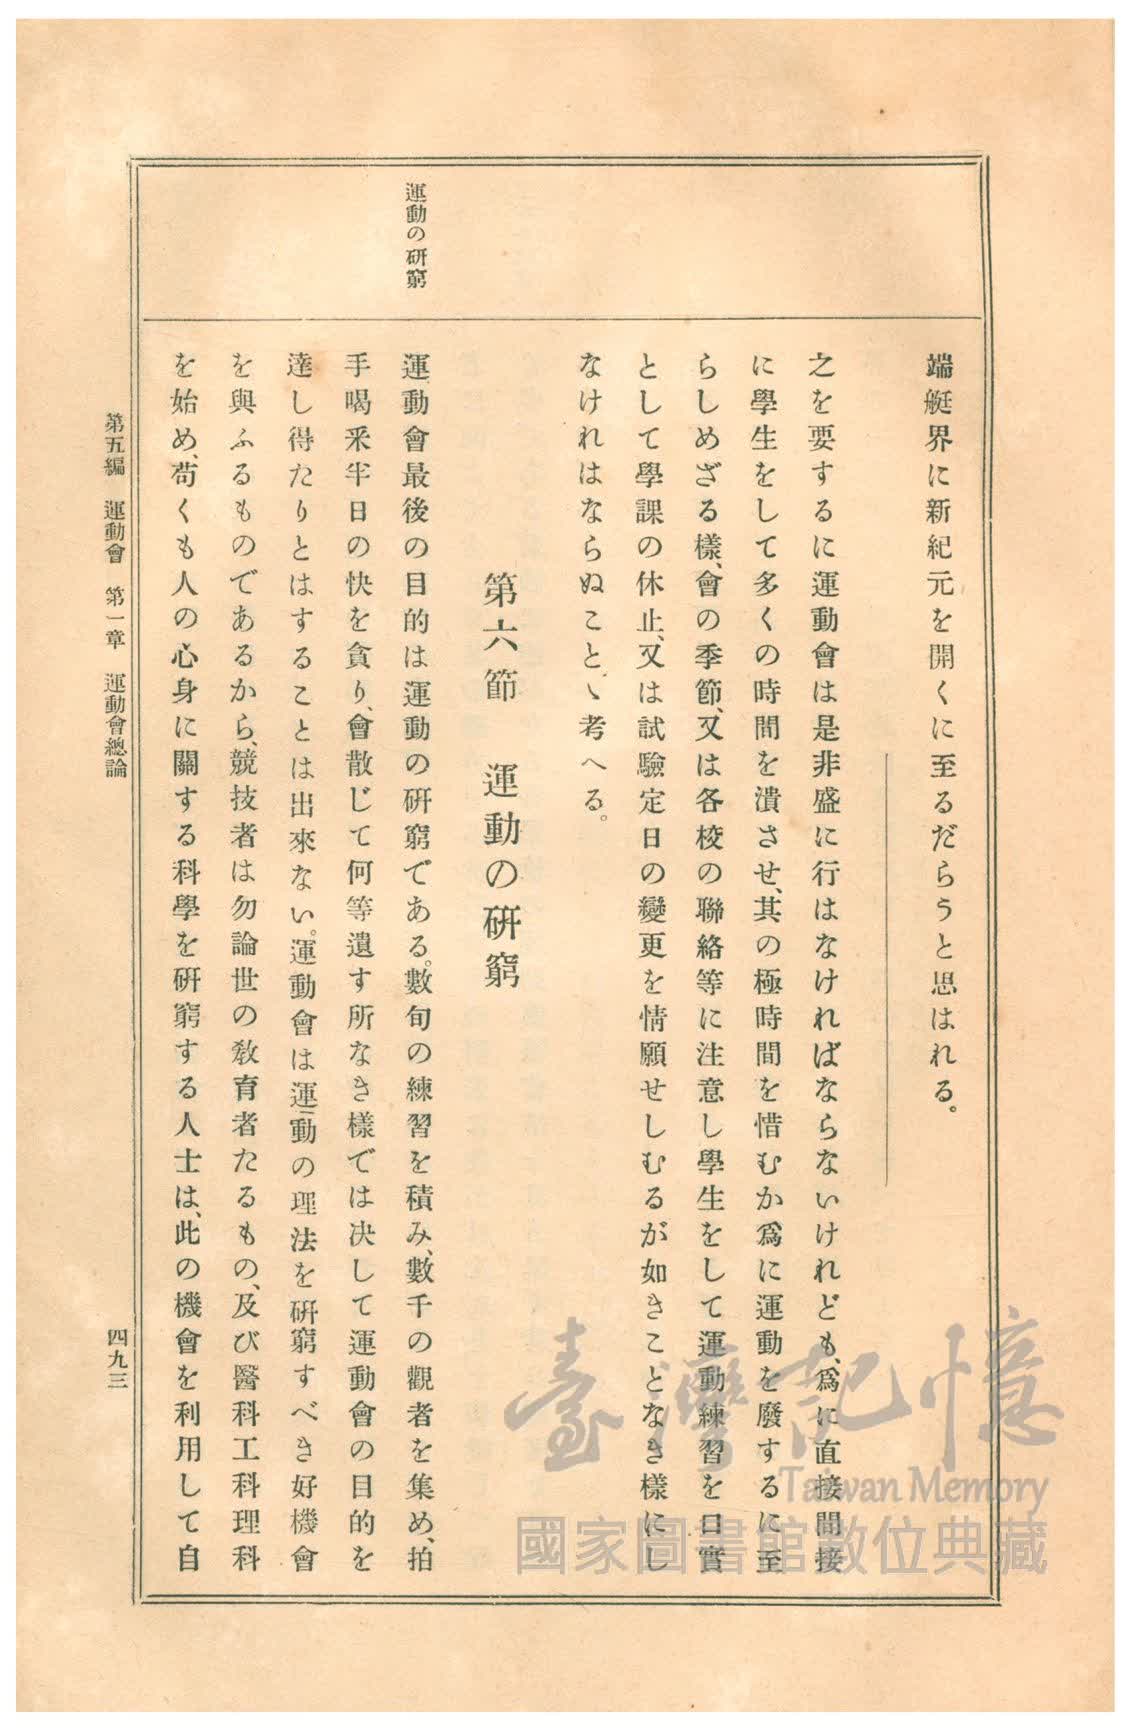 運動の研窮
端艇界に新紀元を開くに至るだらうと思はれる。
之を要するに運動會は是非盛に行はなければならないけれども、爲に直接間接
に學生をして多くの時間を潰させ、其の極時間を惜むか爲に運動を廢するに至
らしめざる樣、會の季節、又は各校の聯絡等に注意し學生をして運動練習を口實
として學課の休止、又は試驗定日の變更を情願せしむるが如きことなき樣にし
なけれはならぬことゝ考へる。
第六節 運動の研窮
運動會最後の目的は運動の研窮である。數旬の練習を積み、數千の觀者を集め、拍
手喝釆半日の快を貪り、會散じて何等遺す所なき樣では决して運動會の目的を
達し得たりとはすることは出來ない。運動會は運動の理法を研窮すべき好機會
を與ふるものであるから、競技者は勿論世の敎育者たるもの、及び醫科工科理科
を始め、苟くも人の心身に關する科學を研窮する人士は、此の機會を利用して自
第五編 運動會 第一章 運動會總論
四九三
臺灣記憶
Taiwan Memory
國家圖書館數位典藏